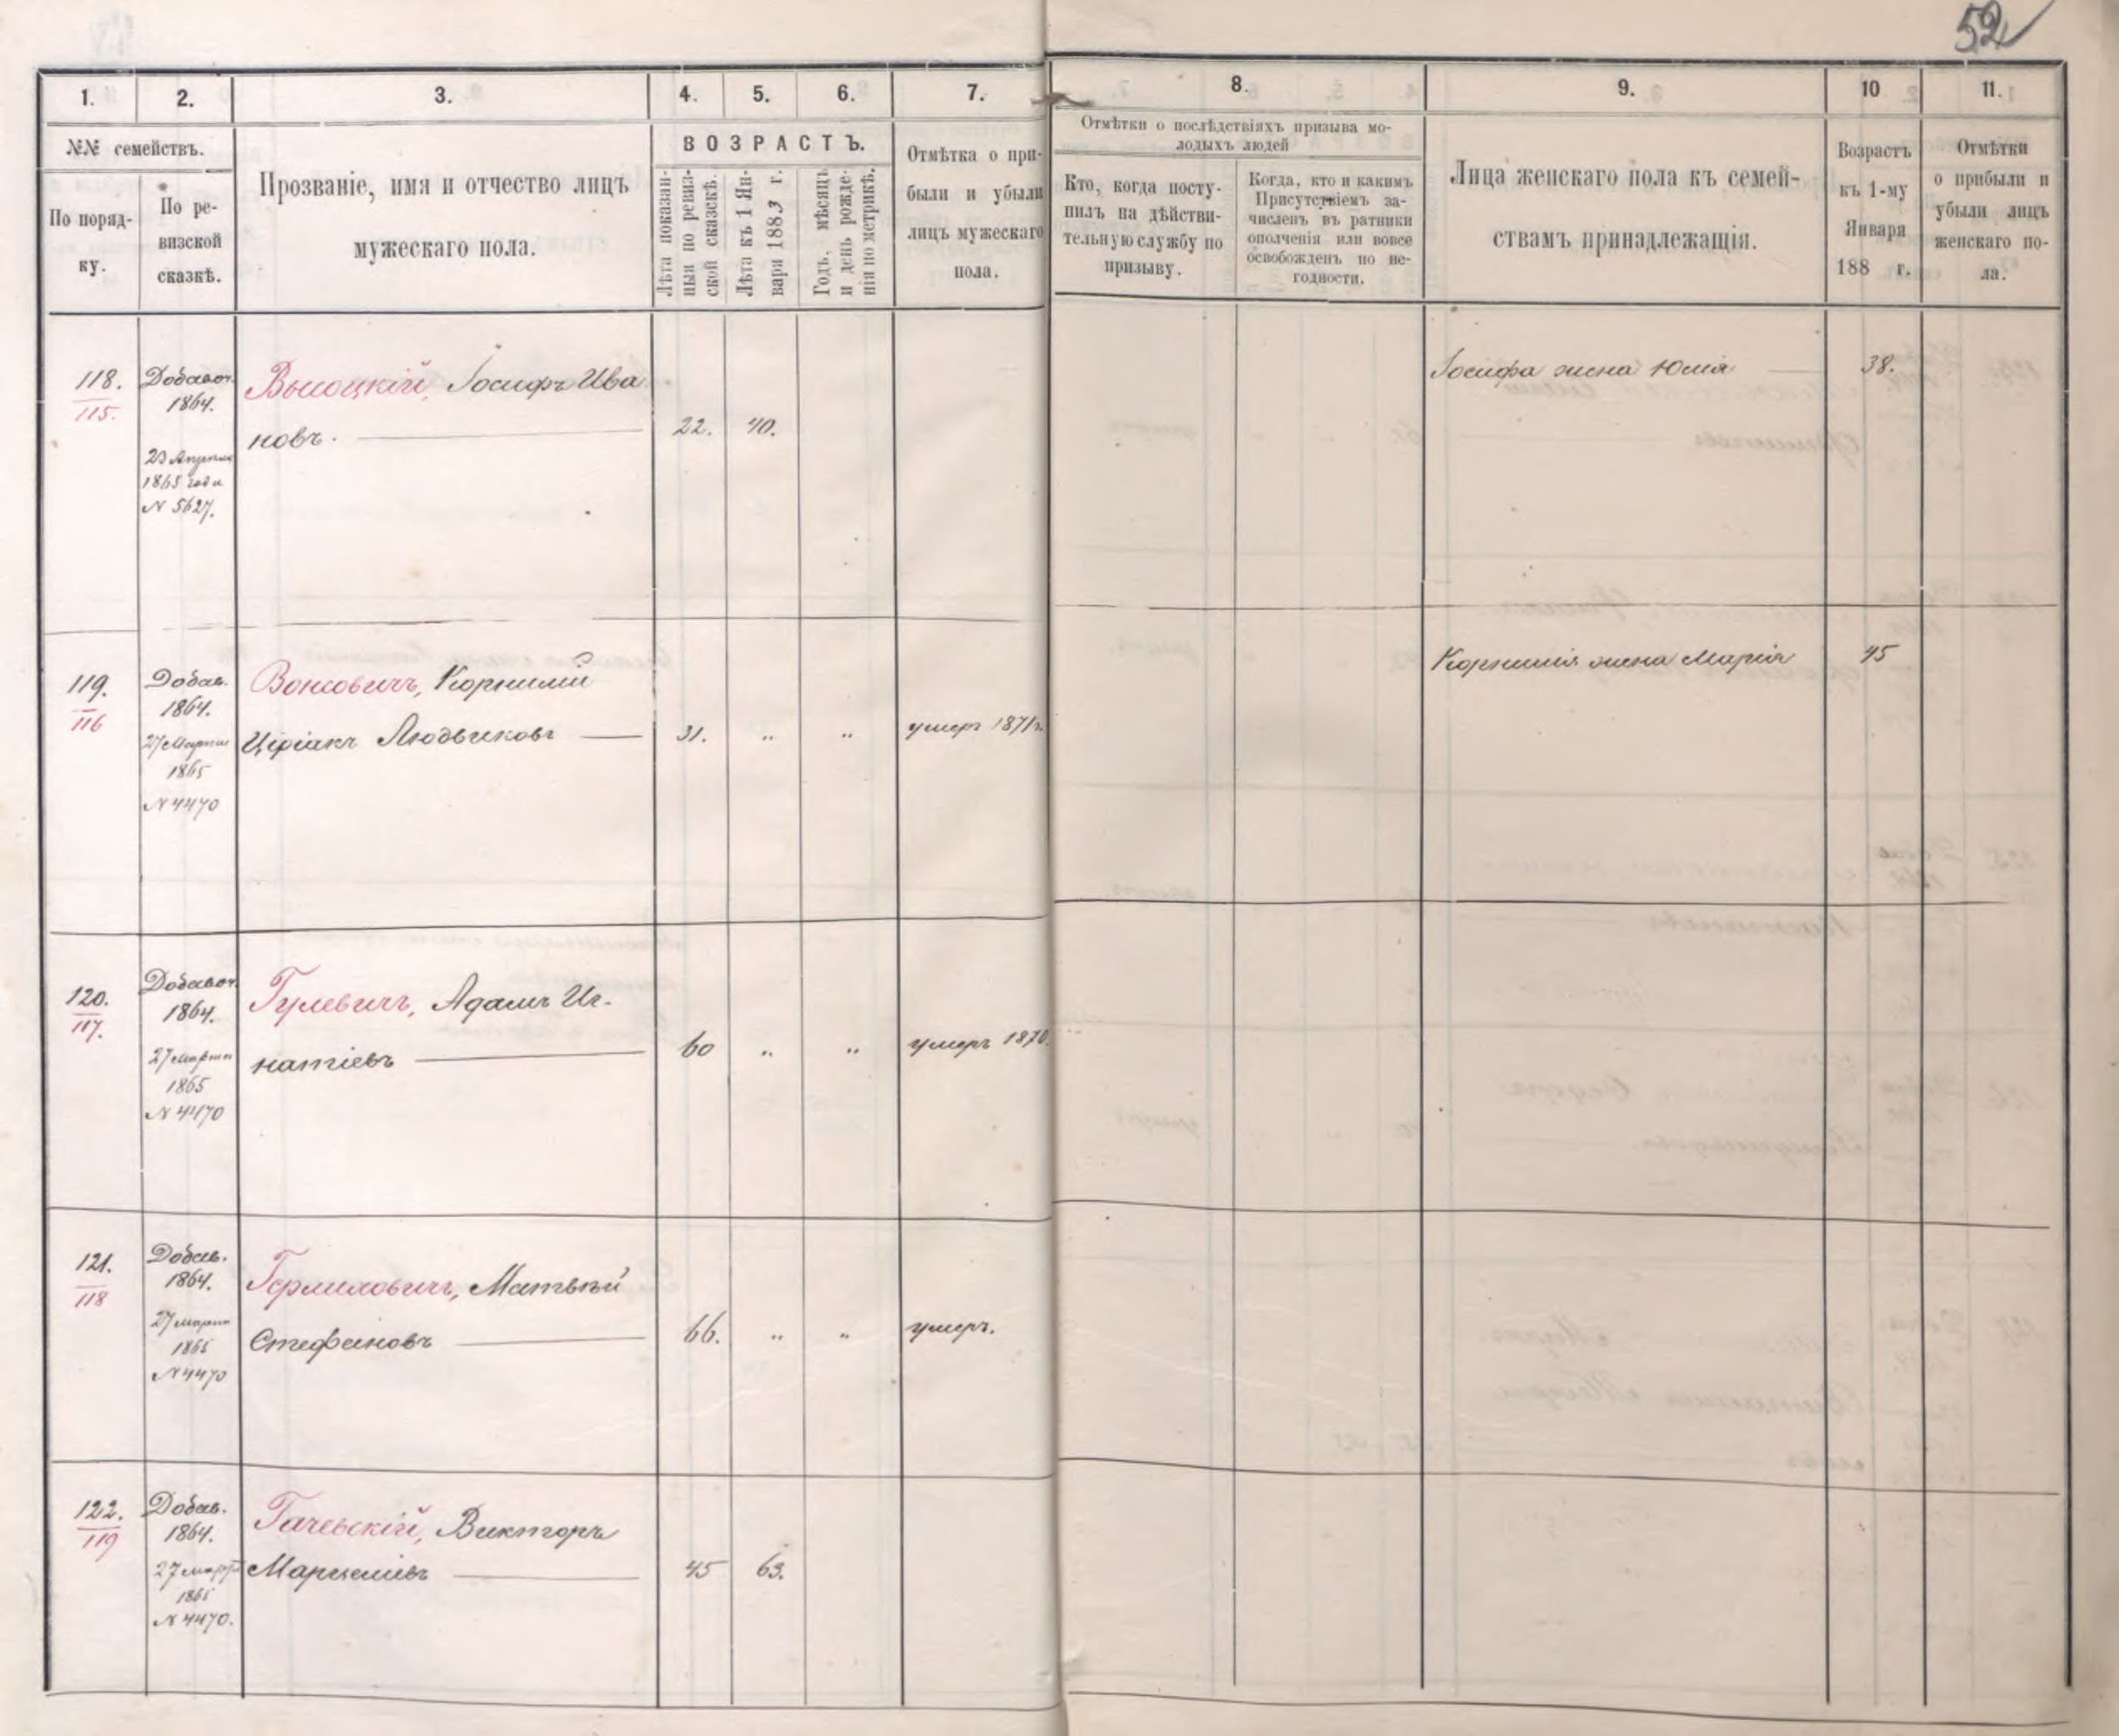 52
1.
2.
3.
4.
5.
6.
7.
8.
9.
10
11.
№№ семействъ.
По поряд-
ку.
По ре-
визской
сказкѣ.
Прозваніе, имя и отчество лицъ
мужескаго пола.
ВОЗРАСТЪ.
Лѣта показан-
ныя по ревиз-
ской сказкѣ.
Лѣта къ 1 Ян-
варя 1883 г.
Годъ, мѣсяцъ
и день рожде-
нія по метрикѣ.
Отмѣтка о при-
были и убыли
лицъ мужескаго
пола.
Отмѣтки о послѣдствіяхъ призыва мо-
лодыхъ людей
Кто, когда посту-
пилъ на дѣйстви-
тельную службу по
призыву.
Когда, кто и какимъ
Присутствіемъ за-
численъ въ ратники
ополченія или вовсе
освобожденъ по не-
годности.
Лица женскаго пола къ семей-
ствамъ принадлежащія.
Возрастъ
къ 1-му
Января
188 г.
Отмѣтки
о прибыли и
убыли лицъ
женскаго по-
ла.
118.
115.
Добавоч.
1864.
23 Апрѣля
1865 года
N 5627.
Высоцкій, Іосифъ Ива
новъ.
22.
40.
Іосифа жена Юлія
38.
119.
116
Добав.
1864.
27 Марта
1865
N 4470
Вонсовичъ, Корнилій
Циріакъ Людвиковъ
31.
"
"
умеръ 1871 г.
Корнилія жена Марія
45
120.
117.
Добавоч.
1864.
27 марта
1865
N 4470
Гулевичъ, Адамъ Иг-
натіевъ
60
"
"
умеръ 1870.
121.
118
Добав.
1864.
27 марта
1865
N 4470
Гермиловичъ, Матвѣй
Стефановъ
66.
"
"
умеръ.
122.
119
Добав.
1864.
27 март
1865
N 4470.
Гачевскій, Викторъ
Марцеліевъ
45
63.